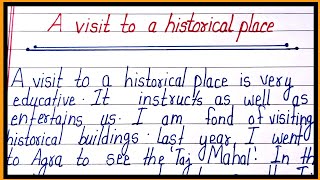 A visit to a historical place
A visit to a historical place is very
educative. It instructs as well as
entertains us. I am fond of visiting
historical buildings. last year, I went
to Agra to see the 'Taj Mahal'. In th